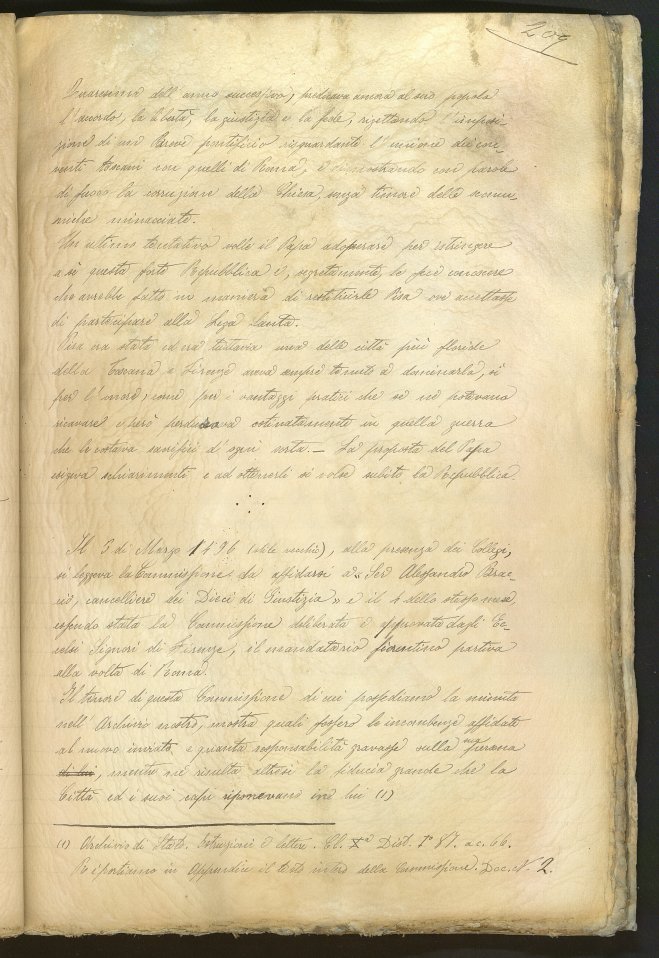 209
Quaresima dell'anno successivo, predicava ancora al suo popolo
l'accordo, la libertà, la giustizia e la fede, rigettando l'imposi-
zione di un Breve pontificio risguardante l'unione dei con-
venti toscani con quelli di Roma, e dimostrando con parole
di fuoco la corruzione della Chiesa, senza timore delle scomu-
niche minacciate.
Un ultimo tentativo volle il Papa adoperare per stringere
a sè questa forte Repubblica e, segretamente, le fece conoscere
che avrebbe fatto in maniera di restituirle Pisa ove accettasse
di partecipare alla Lega Santa.
Pisa era stata ed era tuttavia una delle città più floride
della Toscana e Firenze aveva sempre tenuto a dominarla, sì
per l'onore, come per i vantaggi pratici che se ne potevano
ricavare e però perdurava ostinatamente in quella guerra
che le costava sacrifizi d'ogni sorta. — La proposta del Papa
esigeva schiarimenti e ad ottenerli si volse subito la Repubblica.
Il 3 di Marzo 1496 (stile vecchio), alla presenza dei Collegi,
si leggeva la Commissione da affidarsi a "Ser Alessandro Brac-
ci, cancelliere dei Dieci di Giustizia" e il 4 dello stesso mese
essendo stata la Commissione deliberata e approvata dagli Ec-
celsi Signori di Firenze, il mandatario fiorentino partiva
alla volta di Roma.
Il tenore di questa Commissione di cui possediamo la minuta
nell'Archivio nostro, mostra quali fossero le incombenze affidate
al nuovo inviato e quanta responsabilità gravasse sulla sua persona
di lui, mentre ne risulta altresì la fiducia grande che la
Città ed i suoi capi riponevano in lui (1)
(1) Archivio di Stato. Istruzioni e lettere. Cl. Xa Dist. 1o 87. a c. 66.
Riportiamo in Appendice il testo intero della Commissione. Doc. N. 2.